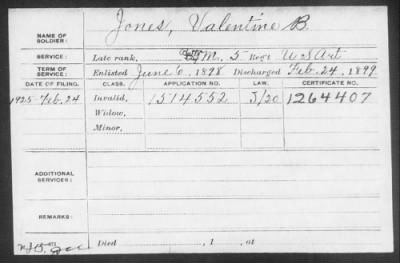 Jones, Valentine B.
NAME OF SOLDIER:
SERVICE: Late rank, M, 5 Reg't U S Art
TERM OF SERVICE: Enlisted June 6, 1898 Discharged Feb. 24, 1899
DATE OF FILING. CLASS. APPLICATION NO. LAW. CERTIFICATE NO.
1925-Feb. 24 Invalid, 1514552 5/20 1264407
Widow,
Minor,
ADDITIONAL SERVICES:
REMARKS:
Died , 1 , at